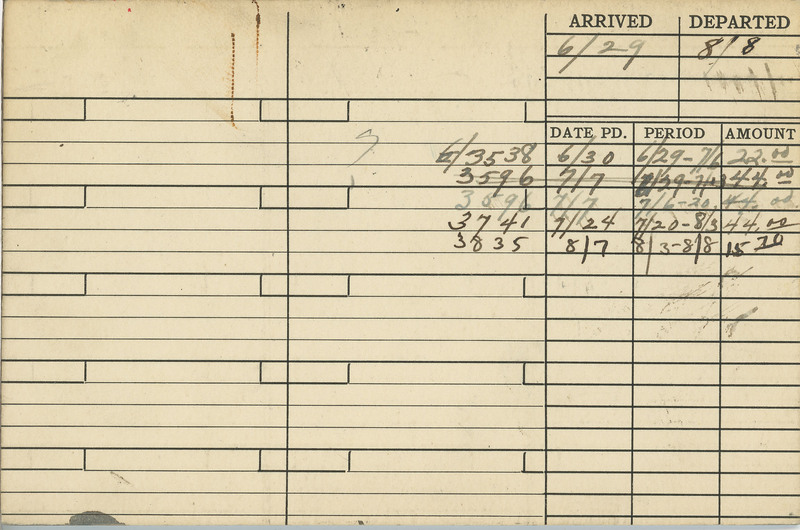 ARRIVED DEPARTED
6/29 8/8
DATE PD. PERIOD AMOUNT
3538 6/30 6/29-7/6 22.00
3596 7/7 44.00
3596 7/7 7/6-20 44.00
3741 7/24 7/20-8/3 44.00
3835 8/7 8/3-8/8 15